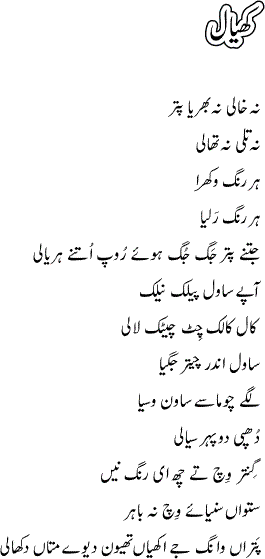 کھیال
نہ خالی نہ بھریا پتر
نہ تلی نہ تھالی
ہر رنگ وکھرا
ہر رنگ رَلیا
جتنے پتر جگ جُگ ہوئے رُوپ اُتنے ہریالی
آپے ساول پیلک نیلک
کال کالک چِٹ چیٹک لالی
ساول اندر چیتر جگیا
لگے چوماسے ساون وسیا
دُھپی دوپہر سیالی
گِنتر وِچ تے چھ ای رنگ نیں
ستواں سنیائے وِچ نہ باہر
پتراں وانگ جے اکھیاں تھیون دیوے متاں دکھالی